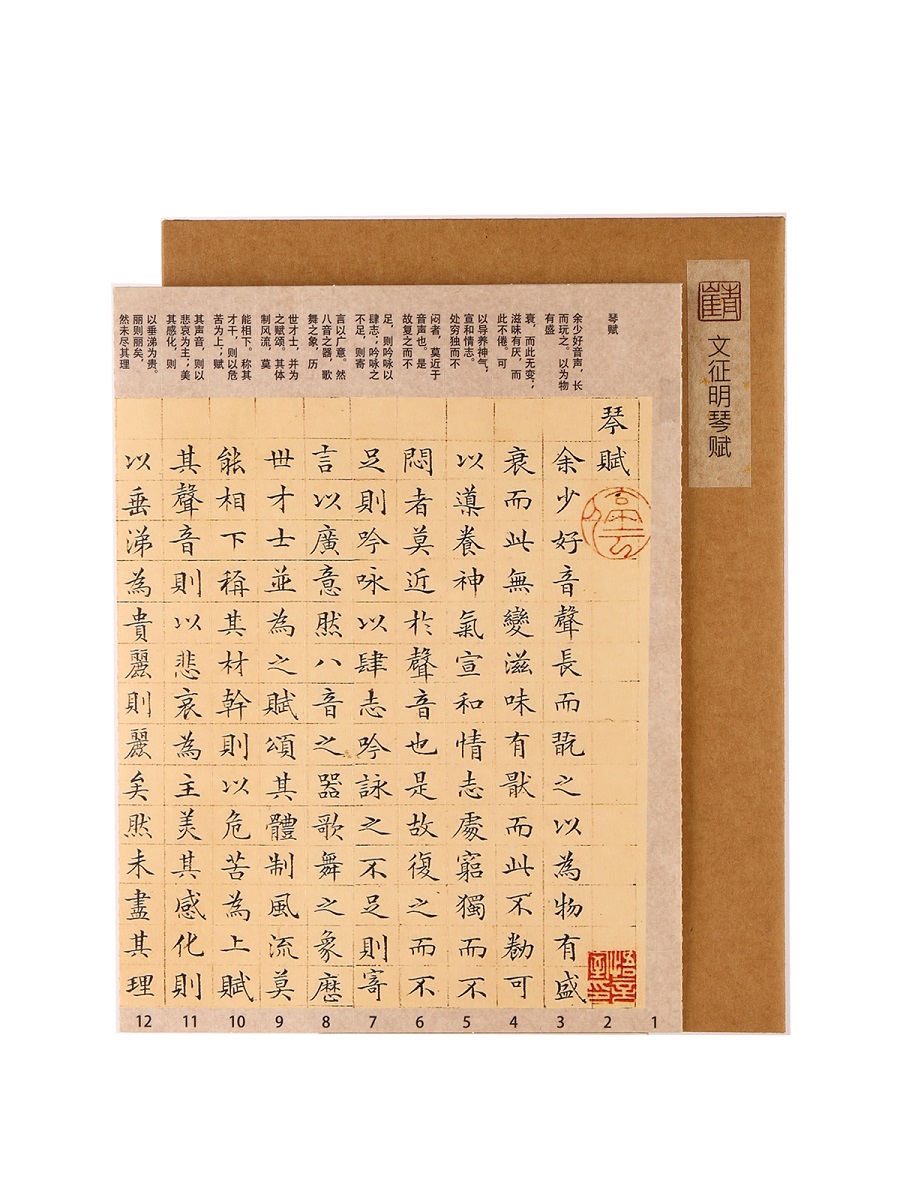 文征明琴赋
琴赋
余少好音声，长
而玩之。以为物
有盛
衰，而此无变；
滋味有厌，而
此不倦。可
以导养神气，
宣和情志。
处穷独而不
闷者，莫近于
音声也。是
故复之而不
足，则吟咏以
肆志；吟咏之
不足，则寄
言以广意。然
八音之器，歌
舞之象，历
世才士，并为
之赋颂。其体
制风流，莫
能相下。称其
才干，则以危
苦为上；赋
其声音，则以
悲哀为主；美
其感化，则
以垂涕为贵。
丽则丽矣，
然未尽其理
琴賦
余少好音聲長而翫之以為物有盛
衰而此無變滋味有猒而此不勌可
以導養神氣宣和情志處窮獨而不
悶者莫近於聲音也是故復之而不
足則吟咏以肆志吟詠之不足則寄
言以廣意然八音之器歌舞之象歷
世才士並為之賦頌其體制風流莫
能相下稱其材幹則以危苦為上賦
其聲音則以悲哀為主美其感化則
以垂涕為貴麗則麗矣然未盡其理
悟言室印
12 11 10 9 8 7 6 5 4 3 2 1